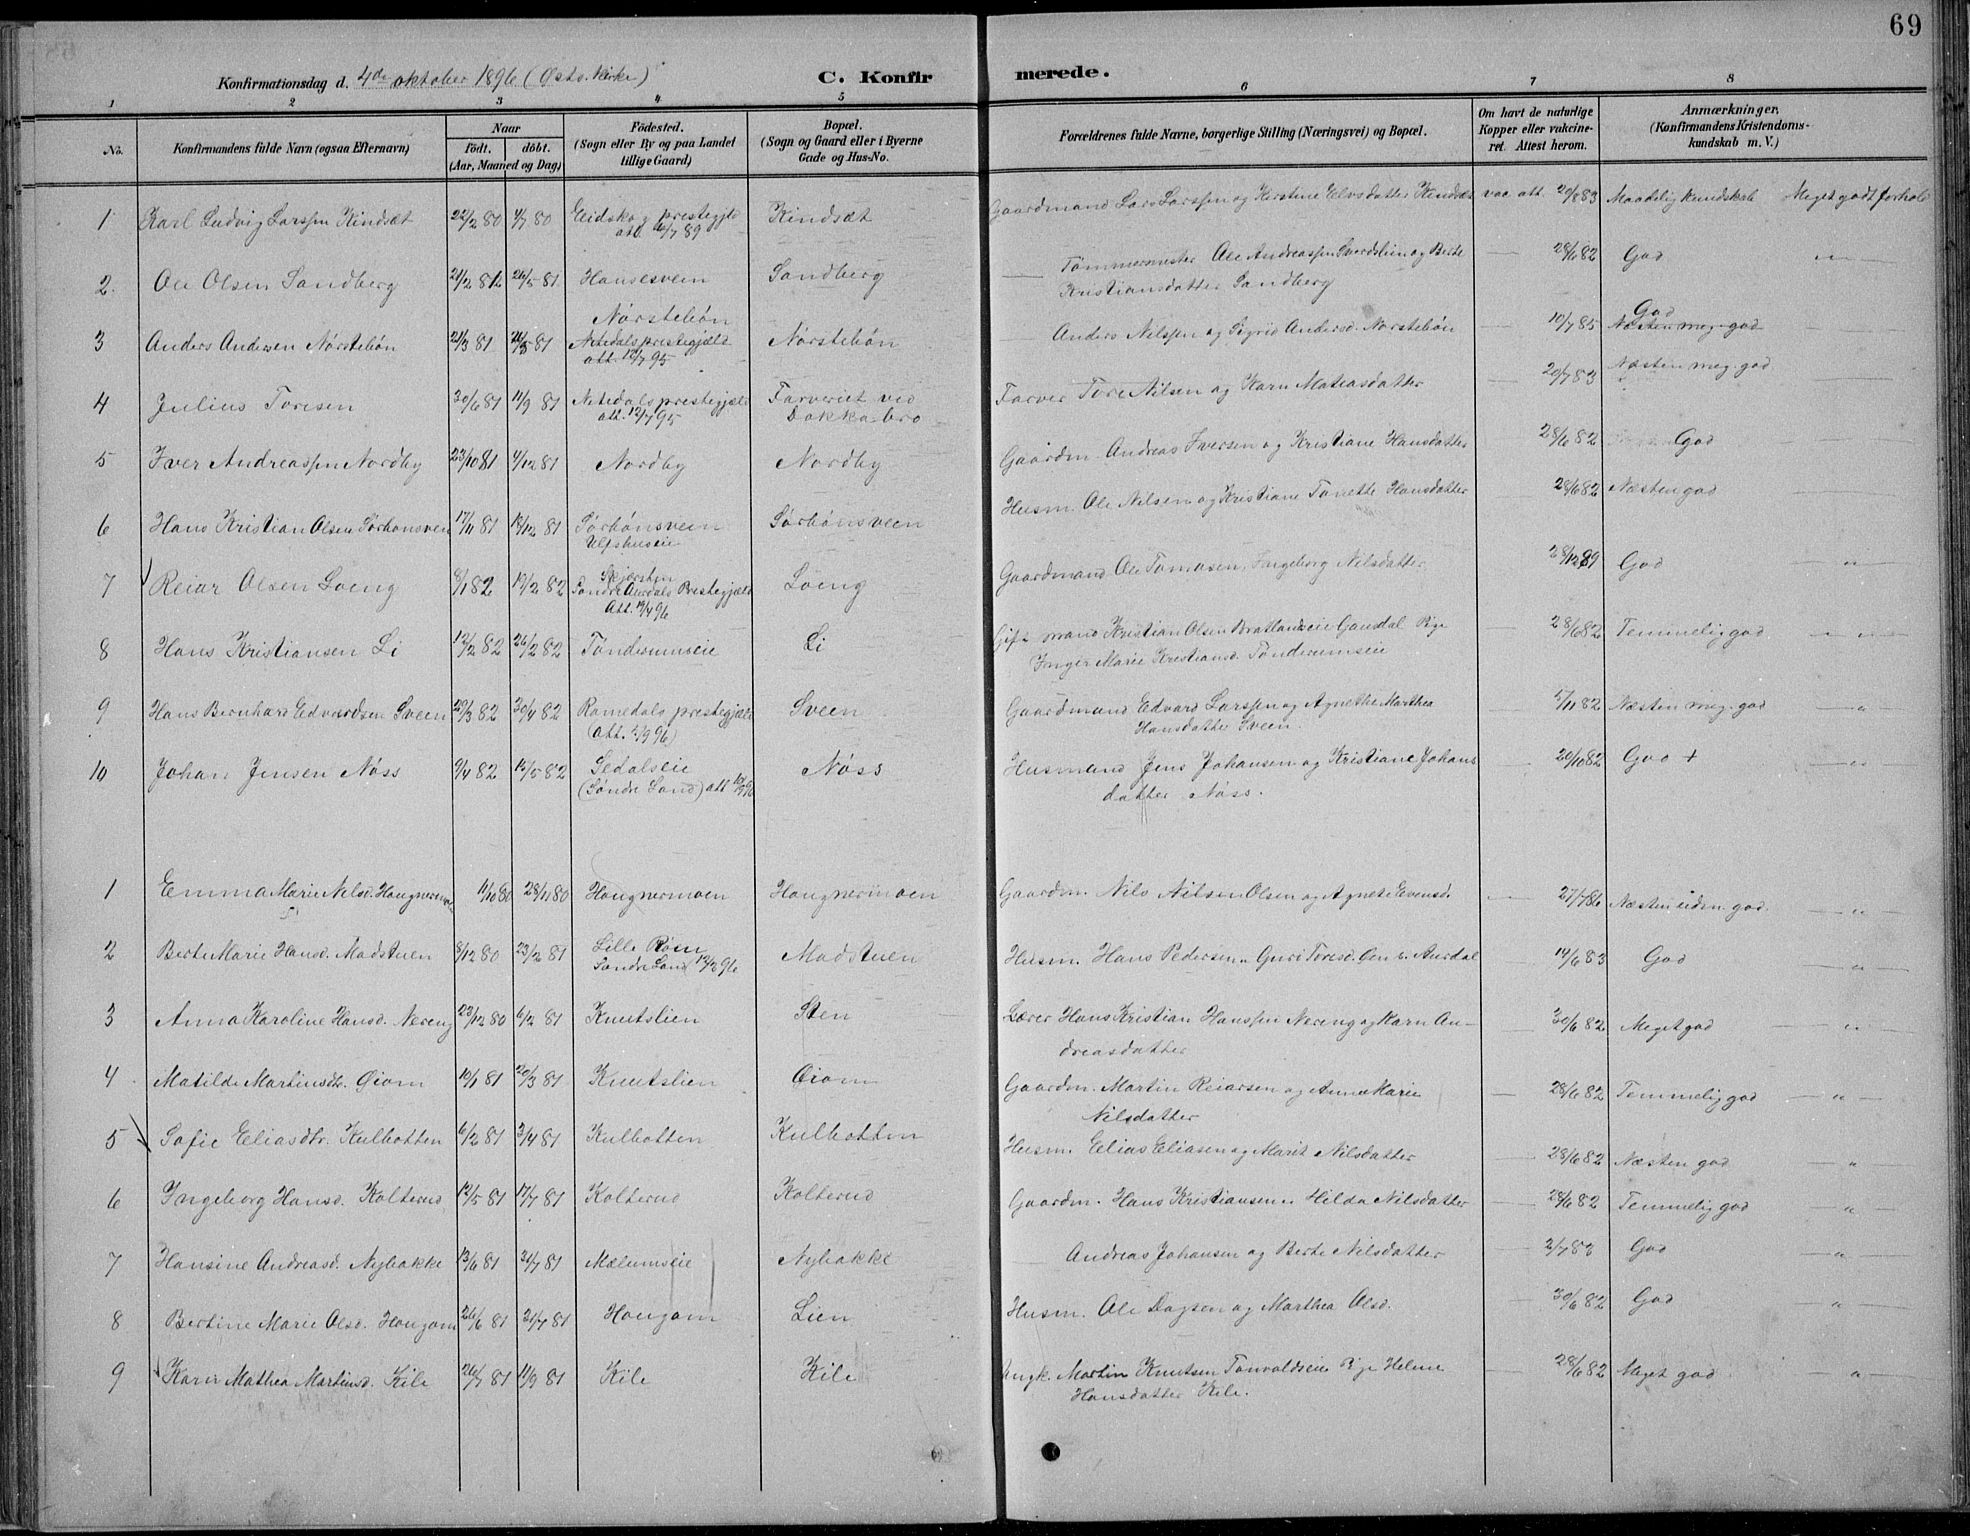 69
Konfirmationsdag d. 4de oktober 1896 (Østs. Kirke) C. Konfirmerede.
1 2 3 4 5 6 7 8
No. Konfirmandens fulde Navn (ogsaa Efternavn) Naar födt. döbt. (Aar, Maaned og Dag) Födested. (Sogn eller By og paa Landet tillige Gaard) Bopæl. (Sogn og Gaard eller i Byerne Gade og Hus-No. Forældrenes fulde Navne, borgerlige Stilling (Næringsvei) og Bopæl. Om havt de naturlige Kopper eller vakcineret. Attest herom. Anmærkninger, (Konfirmandens Kristendomskundskab m. V.)
1 Karl Ludvig Larssen Kindsæt 22/2 80 4/7 80 Eidskog prestegjeld att. 16/7 89 Kindsæt Gaardmand Lars Larssen og Kirstine Elvsdatter Kindsæt vaa att. 20/8 83 Maadelig kundskab Meget godt forhold
2. Ole Olsen Sandberg 21/2 81 26/5 81 Hansesveen Sandberg — Tømmermester Ole Andreassen Sverdslien og Berte Kristiansdatter Sandberg — 28/6 82 God — " —
3 Anders Andersen Nørstebøn 21/3 81 24/5 81 Nørstebøn Nitedals prestegjæld att. 12/7 95 Nørstebøn Anders Nilssen og Sigrid Andersd. Nørstebøn — 10/7 85 God Næsten meg. god
4 Julius Toresen 30/6 81 11/9 81 Nitedals prestegjæld att. 12/7 95 Farveriet ved Dokka bro Farver Tore Nilsen og Karn Matiasdatter — 20/7 83 Næsten meg. god
5 Iver Andreassen Nordby 23/10 81 4/12 81 Nordby Nordby Gaardm. Andreas Iversen og Kristiane Hansdatter 28/6 82 God
6 Hans Kristian Olsen Sørhønsveen 17/11 81 18/12 81 Sørhønsveen Ulfshuseie Sørhønsveen Husm. Ole Nilsen og Kristiane Tonette Hansdatter 28/6 82 Næsten god
7 Reiar Olsen Loeng 8/1 82 19/2 82 Søndre Aurdals Prestegjæld Att. 14/4 96 Loeng Gaardmand Ole Tomasen, Ingeborg Nilsdatter 28/12 89 God "
8 Hans Kristiansen Li 12/2 82 26/2 82 Tønderumseie Li Gift mand Kristian Olsen Bratlandseie Gausdal Pige Inger Marie Kristiansd. Tønderumseie — 28/6 82 Temmelig god — " —
9 Hans Bernhard Edvardsen Sveen 29/3 82 30/4 82 Romedals prestegjæld (att. 2/9 96) Sveen Gaardmand Edvard Larssen og Agnethe Marthea Hansdatter Sveen — 5/11 82 Næsten meg. god — " —
10 Johan Jensen Nöss 9/4 82 18/5 82 Sedalseie (Söndre Land) att 10/9 96 Nöss Husmand Jens Johansen og Kristiane Johansdatter Nöss. — 20/10 82 God + — " —
1 Emma Marie Nilsd. Haugnermoen 11/10 80 28/11 80 Haugnermoen Haugnermoen Gaardm. Nils Nilsen Olsen og Agnete Evensd. — 27/7 86 Næsten uden. god. — " —
2 Berte Marie Hansd. Madstuen 8/12 80 23/2 81 Lille Røen Søndre Land 12/3 96 Madstuen Husm. Hans Pedersen " Guri Toresd. Øen v. Aurdal 14/6 83 God — " —
3 Anna Karoline Hansd. Nereng 28/12 80 6/2 81 Knutslien Sten Lærer Hans Kristian Hanssen Nereng og Karn Andreasdatter — 30/6 82 Meget god — " —
4 Matilde Martinsdtr. Øiom 19/1 81 20/3 81 Knutslien Øiom Gaardm. Martin Reiarsen og Anne Marie Nilsdatter — 28/6 82 Temmelig god — " —
5 Sofie Eliasdtr. Kulhotten 6/2 81 3/4 81 Kulhotten Kulhotten Husm. Elias Eliasen og Marit Nilsdatter — 28/6 82 Næsten god — " —
6 Ingeborg Hansd. Kolterud 12/5 81 17/7 81 Kolterud Kolterud Gaardm. Hans Kristiansen " Hilda Nilsdatter — 28/6 82 Temmelig god — " —
7 Hansine Andreasd. Nybakke 13/6 81 31/7 81 Mælumseie Nybakke — Andreas Johansen og Berte Nilsdatter — 2/7 83 God — " —
8 Bertine Marie Olsd. Haugom 26/6 81 31/7 81 Haugom Lien Husm. Ole Dagsen og Marthea Olsd. — 30/6 82 God — " —
9 Karn Mathea Martinsd. Kile 26/7 81 11/9 81 Kile Kile Ungk. Martin Knutsen Tonvoldseie Pige Helene Hansdatter Kile. — 28/6 82 Meget god — " —